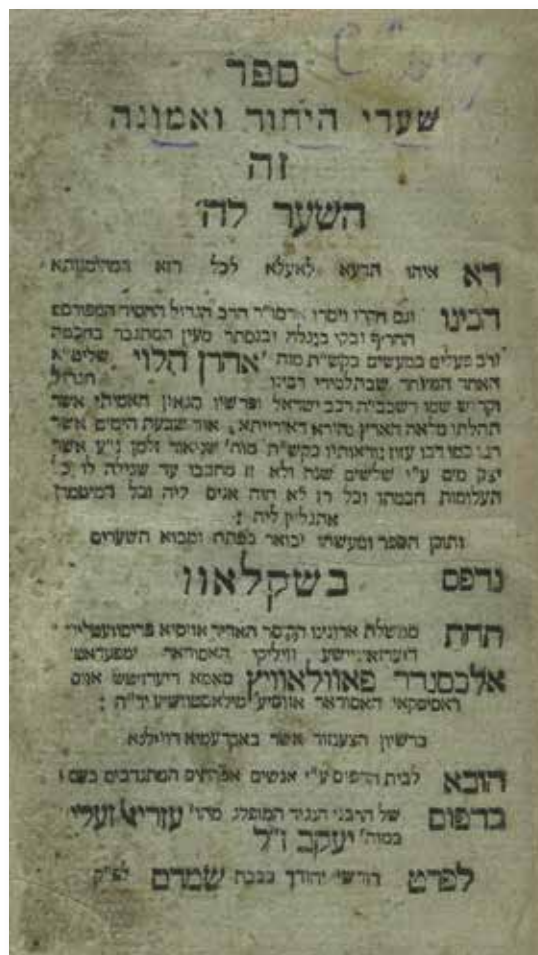 ספר
שערי היחוד ואמונה
זה
השער לה'
דא איהו תרעא לאעלא לכל רזא דמהימנותא
רבינו וגם חקרו ויסדו אדמו"ר הרב הגדול החסיד המפורסם
החריף ובקי בנגלה ובנסתר מעין המתגבר בחכמה
ורב פעלים במעשים כקש"ת מוה' אהרן הלוי שליט"א
האחד המיוחד שבתלמידי רבינו הגדול
וקדוש שמו רשכבה"ג רבב ישראל ופרשיו הגאון האמיתי אשר
תהלתו מלאה הארץ נהורא דאורייתא אור שבעת הימים אשר
עזוז נוראותיו כקש"ת מוה' שניאור זלמן נ"ע אשר
יצק מים ע"י שלשים שנה ולא זז מחבבו עד שגילה לו כל
תעלומות חכמתו וכל רז לא הוה אניס ליה וכל דמיטמרן
אתגליין ליה
ותוכן הספר ומעשהו יבואר בפתח ומבוא השערים
נדפס בשקלאוו
תחת ממשלת אדונינו הקיסר האדיר
האסודאר
אלכסנדר פאוולאוויץ
האסודאר יר"ה :
ברשיון הצענזור אשר באקדעמיא דווילנא
הובא לבית הדפוס ע"י אנשים המתנדבים בעם :
בדפוס של הרבני הנגיד המופלג מהו' עזריאל זעליג
במוה' יעקב ז"ל
לפרט בבבת שמרם לפ"ק